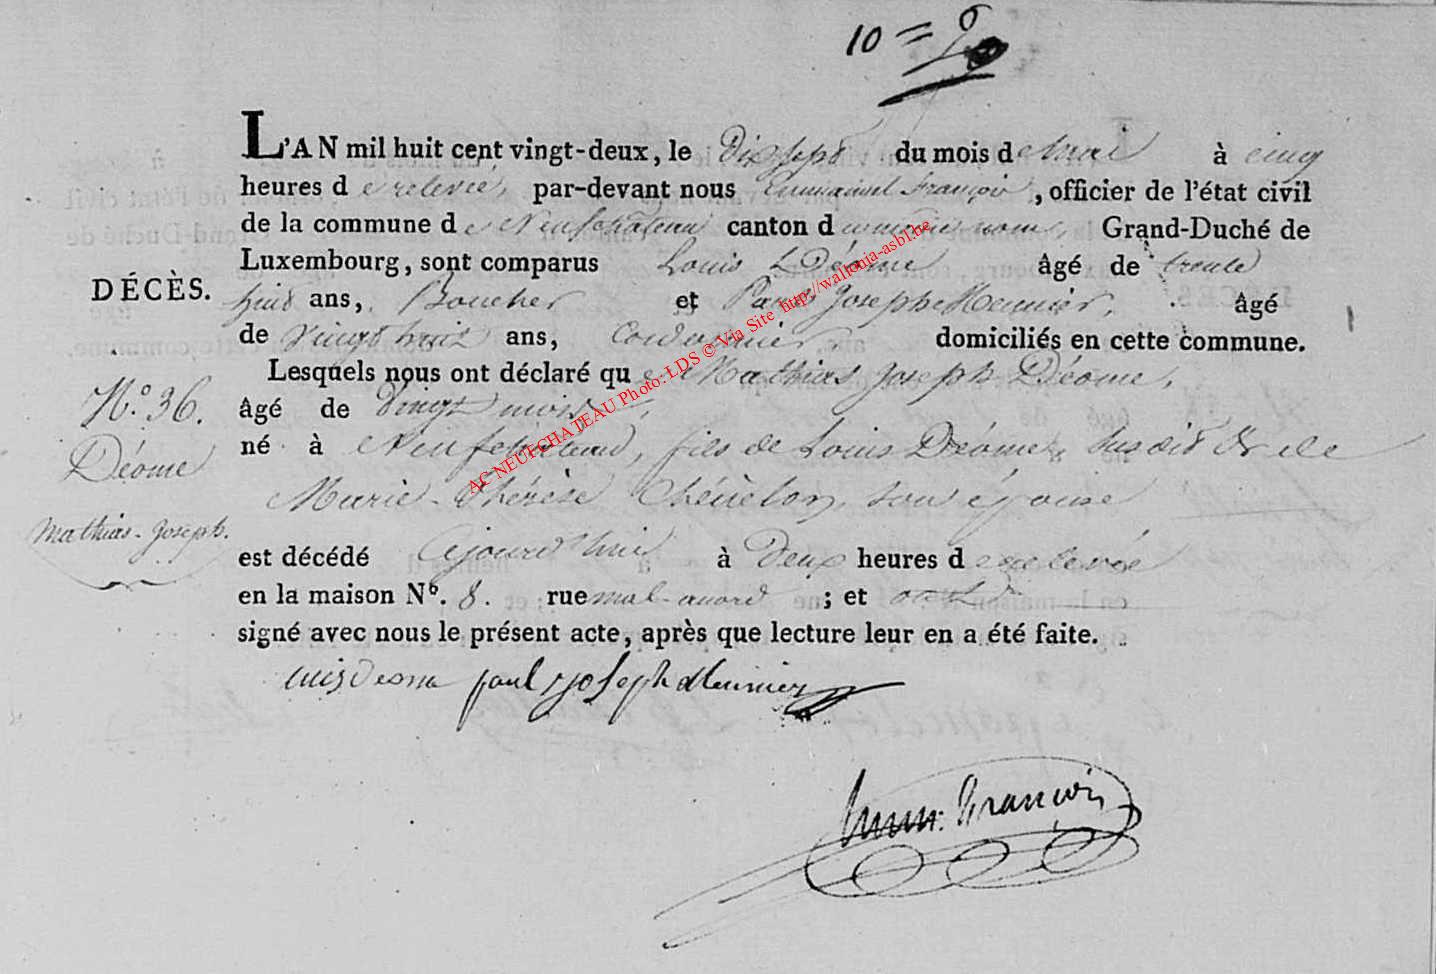 10 =
L'AN mil huit cent vingt-deux, le Dix sept du mois de mai à cinq
heures de relevée, par-devant nous Emmanuel François, officier de l'état civil
de la commune de Neufchâteau canton du même nom, Grand-Duché de
Luxembourg, sont comparus Louis Déome âgé de trente
DÉCÈS.
huit ans, Boucher et Paul Joseph Meunier, âgé
de vingt huit ans, Cordonnier domiciliés en cette commune.
Lesquels nous ont déclaré que Mathias Joseph Déome,
N.º 36.
âgé de vingt mois,
Déome
né à Neufchâteau, fils de Louis Déome, susdit & de
Marie-Thérèse Chénelon, son épouse
Mathias-Joseph.
est décédé ajourd'hui à Deux heures de relevée
en la maison Nº. 8. rue ; et ont
signé avec nous le présent acte, après que lecture leur en a été faite.
paul joseph Meunier
Emm. François
AC NEUFCHATEAU Photo: LDS © Via Site http://wallonia-asbl.be